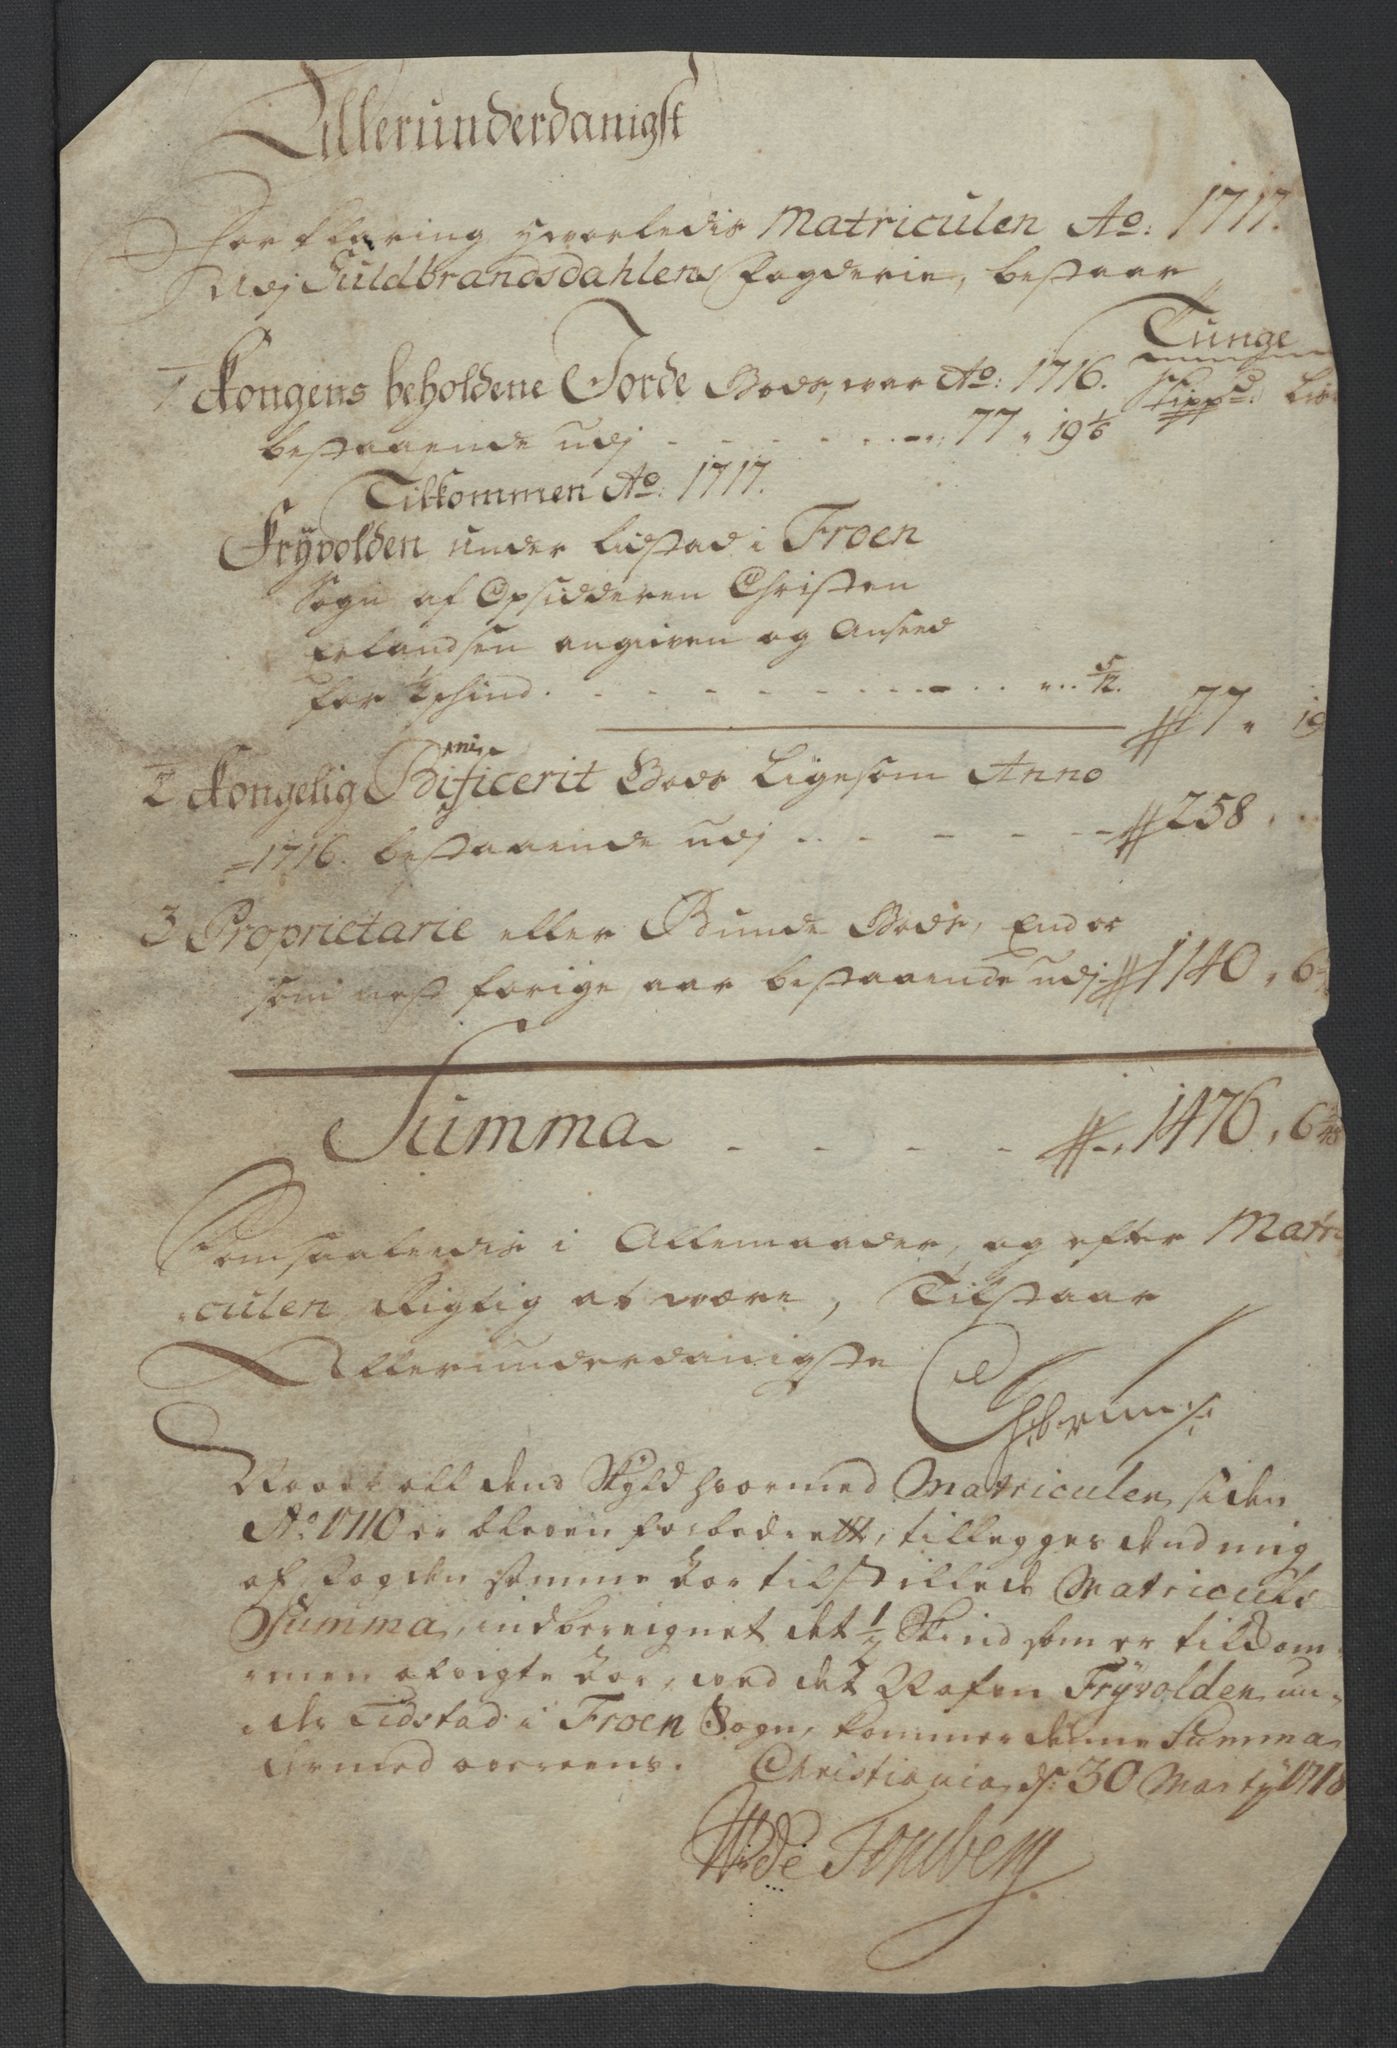 Allerunderdanigst
Forklaring hvorledis Matriculen Ao: 1717.
Udj Guldbrandsdahlens fogderie, bestaar
Tunge
1 Kongens beholdene Jorde Gods, var Ao: 1716. Skippd: Lis
bestaaende udj - - - - - - 77 " 19 1/6
Tilkommen Ao: 1717.
Fryvolden under Lidstad i Froen
Sogn af Opsidderen Christen
Erlandsen angiven og Anseed
for 1/2 schind . - - - - - - - - " .. 5/12.
77 " 19
2 Kongelig Benificerit Gods Ligesom Anno
=1716. bestaaende udj .. - - - - - 258 " ..
3 Proprietarie eller Bunde Gods, End or
som nest forige aar bestaaende udj 1140 " 6
Summa - - - - - 1476 " 6
Somsaaledis i Allemaader, og efter Matri
culen Rigtig at være, Tilstaar
Allerunderdanigste
Naar all dend Skyld hvormed Matriculen siden
Ao 1710 er bleven forbedrett, tillegges dend mig
af fogden samme Aar tilstillede Matriculs
Summa, indbereignet det 1/2 Skind som er tilkom
men afvigte Aar, ved det Nafn Fryvolden un
der Lidstad i Froen Sogn, kommer denne Summa
hermed overeens. Christiania ds: 30 Martij 1718
de Tonsberg